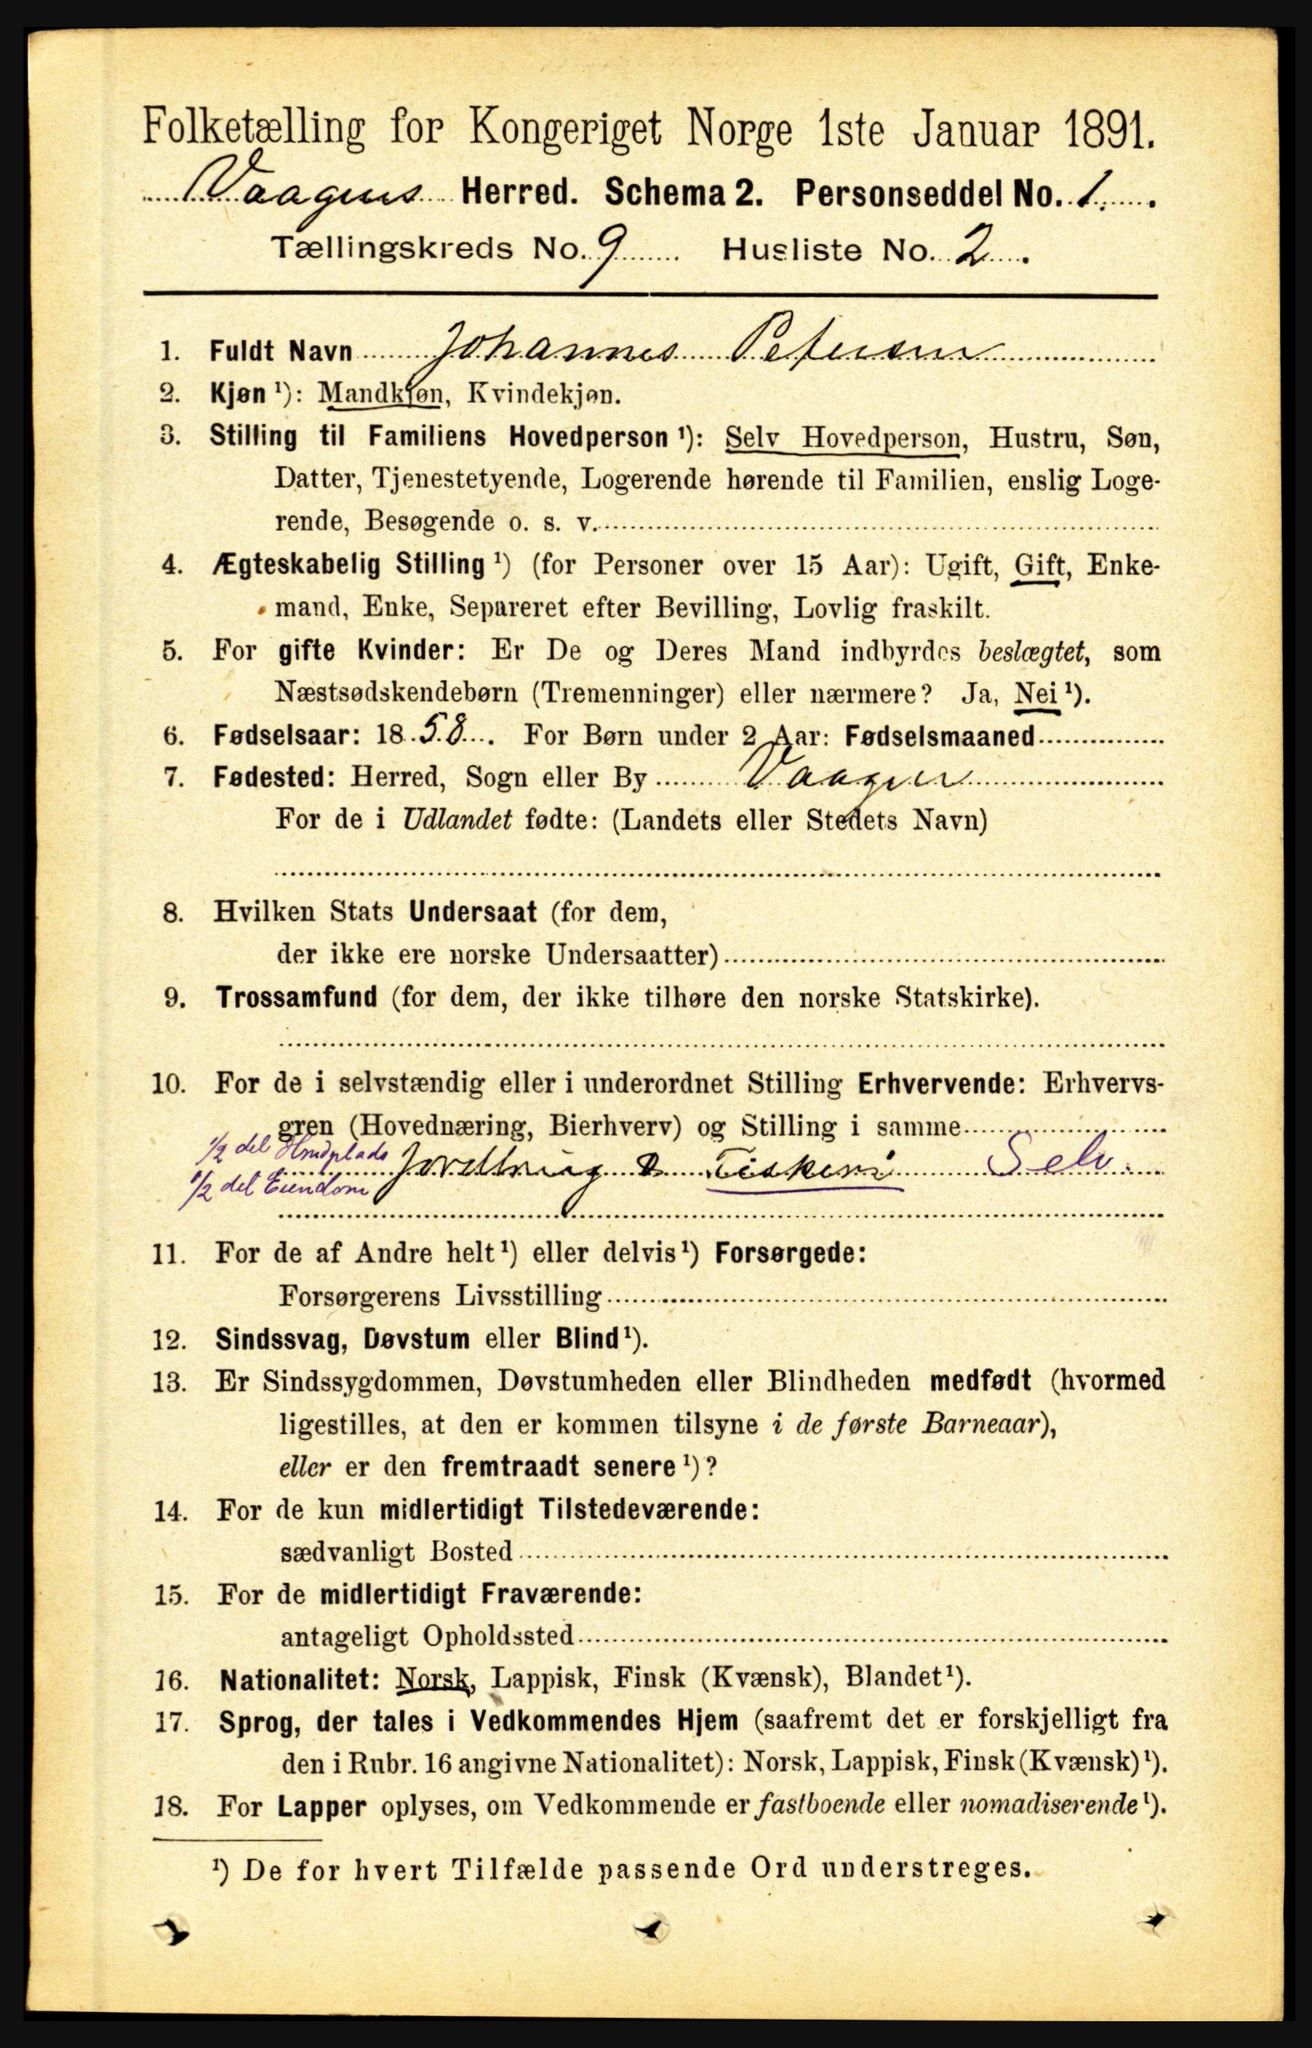 Folketælling for Kongeriget Norge 1ste Januar 1891.
Vaagens Herred. Schema 2. Personseddel No. 1.
Tællingskreds No. 9 Husliste No. 2.
1. Fuldt Navn Johannes Petersen
2. Kjøn ¹): Mandkjøn, Kvindekjøn.
3. Stilling til Familiens Hovedperson ¹): Selv Hovedperson, Hustru, Søn,
Datter, Tjenestetyende, Logerende hørende til Familien, enslig Loge-
rende, Besøgende o. s. v.
4. Ægteskabelig Stilling ¹) (for Personer over 15 Aar): Ugift, Gift, Enke-
mand, Enke, Separeret efter Bevilling, Lovlig fraskilt.
5. For gifte Kvinder: Er De og Deres Mand indbyrdes beslægtet, som
Næstsødskendebørn (Tremenninger) eller nærmere? Ja, Nei ¹).
6. Fødselsaar: 1858. For Børn under 2 Aar: Fødselsmaaned
7. Fødested: Herred, Sogn eller By Vaagen
For de i Udlandet fødte: (Landets eller Stedets Navn)
8. Hvilken Stats Undersaat (for dem,
der ikke ere norske Undersaatter)
9. Trossamfund (for dem, der ikke tilhøre den norske Statskirke).
10. For de i selvstændig eller i underordnet Stilling Erhvervende: Erhvervs-
gren (Hovednæring, Bierhverv) og Stilling i samme
1/2 del Husplads
Fiskeri Selv.
1/2 del Eiendom
11. For de af Andre helt ¹) eller delvis ¹) Forsørgede:
Forsørgerens Livsstilling
12. Sindssvag, Døvstum eller Blind ¹).
13. Er Sindssygdommen, Døvstumheden eller Blindheden medfødt (hvormed
ligestilles, at den er kommen tilsyne i de første Barneaar),
eller er den fremtraadt senere ¹)?
14. For de kun midlertidigt Tilstedeværende:
sædvanligt Bosted
15. For de midlertidigt Fraværende:
antageligt Opholdssted
16. Nationalitet: Norsk, Lappisk, Finsk (Kvænsk), Blandet ¹).
17. Sprog, der tales i Vedkommendes Hjem (saafremt det er forskjelligt fra
den i Rubr. 16 angivne Nationalitet): Norsk, Lappisk, Finsk (Kvænsk) ¹).
18. For Lapper oplyses, om Vedkommende er fastboende eller nomadiserende ¹).
¹) De for hvert Tilfælde passende Ord understreges.